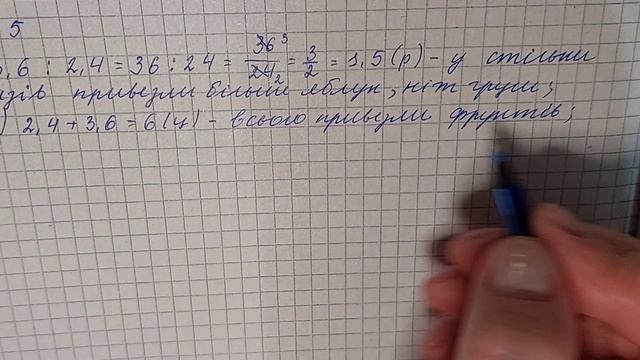 5
,6 : 2,4 = 36 : 24 = 36³/24₂ = 3/2 = 1,5 (р) – у стільки
азів привезли більше яблук, ніж груш;
) 2,4 + 3,6 = 6 (ц) – всього привезли фруктів;